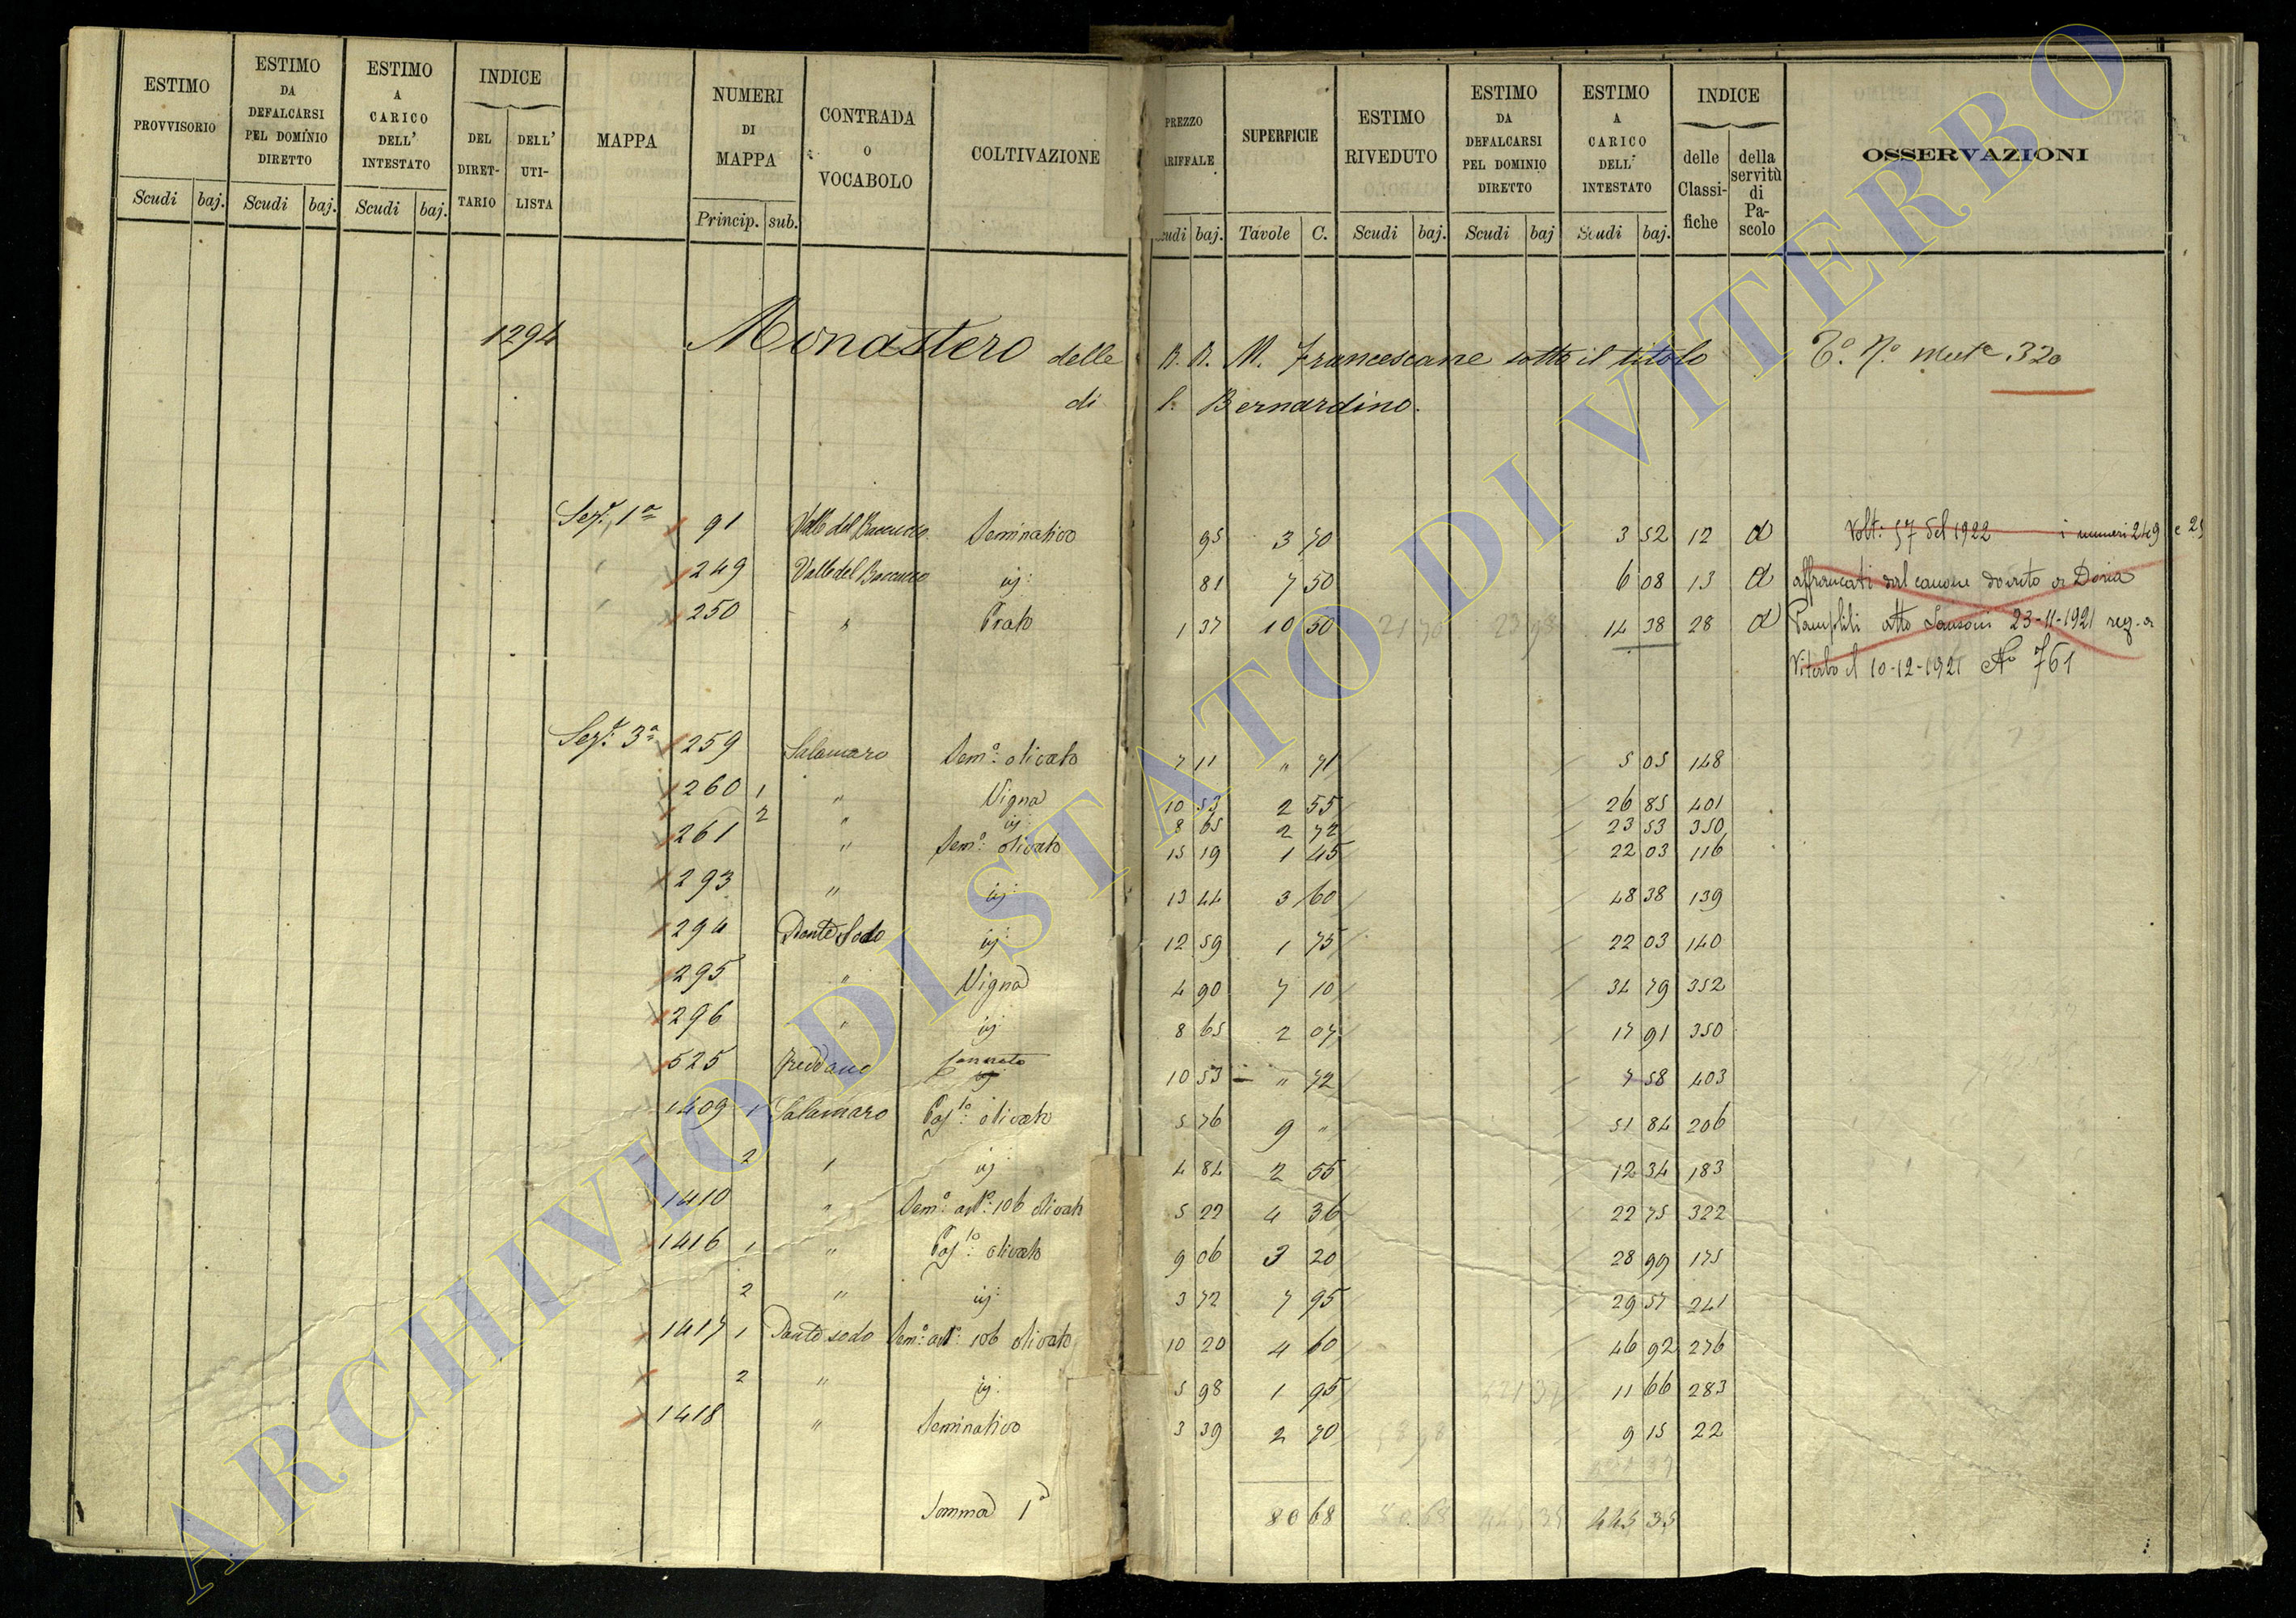 ESTIMO PROVVISORIO Scudi baj.
ESTIMO DA DEFALCARSI PEL DOMINIO DIRETTO Scudi baj.
ESTIMO A CARICO DELL' INTESTATO Scudi baj.
INDICE DEL DIRETTARIO DELL' UTILISTA
MAPPA
NUMERI DI MAPPA Princip. sub.
CONTRADA O VOCABOLO
COLTIVAZIONE
PREZZO TARIFFALE Scudi baj.
SUPERFICIE Tavole C.
ESTIMO RIVEDUTO Scudi baj.
ESTIMO DA DEFALCARSI PEL DOMINIO DIRETTO Scudi baj
ESTIMO A CARICO DELL' INTESTATO Scudi baj.
INDICE delle Classifiche della servitù di Pascolo
OSSERVAZIONI
1294 Monastero delle R. R. M. Francescane sotto il titolo
di S. Bernardino.
320
Sez.e 1a 91 Valle del Seminativo 95 3 70 3 52 12 a Volt: 57 del 1922 i numeri 249 e 25
" 249 Valle del ij: 81 7 50 6 08 13 a affrancati dal canone dovuto a Doria
" 250 " Prato 1 37 10 50 21 70 23 98 14 38 28 a Pamphili atto 23-11-1921 reg. a
Viterbo il 10-12-1921 No 761
Sez.e 3a 259 Salamaro Sem.o olivato 7 11 " 71 5 05 148
260 1 " Vigna 10 53 2 55 26 85 401
2 " ij: 8 65 2 72 23 53 350
261 " Sem.o olivato 15 19 1 45 22 03 116
293 " ij 13 44 3 60 48 38 139
294 Pantê Sodo ij: 12 59 1 75 22 03 140
295 " Vigna 4 90 7 10 34 79 352
296 " ij 8 65 2 07 17 91 350
525 Freddano ij 10 53 " 72 7 58 403
1409 1 Salamaro Pas.lo olivato 5 76 9 " 51 84 206
2 " ij: 4 84 2 55 12 34 183
1410 " Sem.o ad.o 106 olivato 5 22 4 36 22 75 322
1416 1 " Pas.lo olivato 9 06 3 20 28 99 175
2 " ij: 3 72 7 95 29 57 241
1417 1 Pantê sodo Sem.o ad.o 106 olivato 10 20 4 60 46 92 276
2 " ij: 5 98 1 95 11 66 283
1418 " Seminativo 3 39 2 70 9 15 22
Somma 1a 80 68 80 68 445 35 445 35
ARCHIVIO DI STATO DI VITERBO